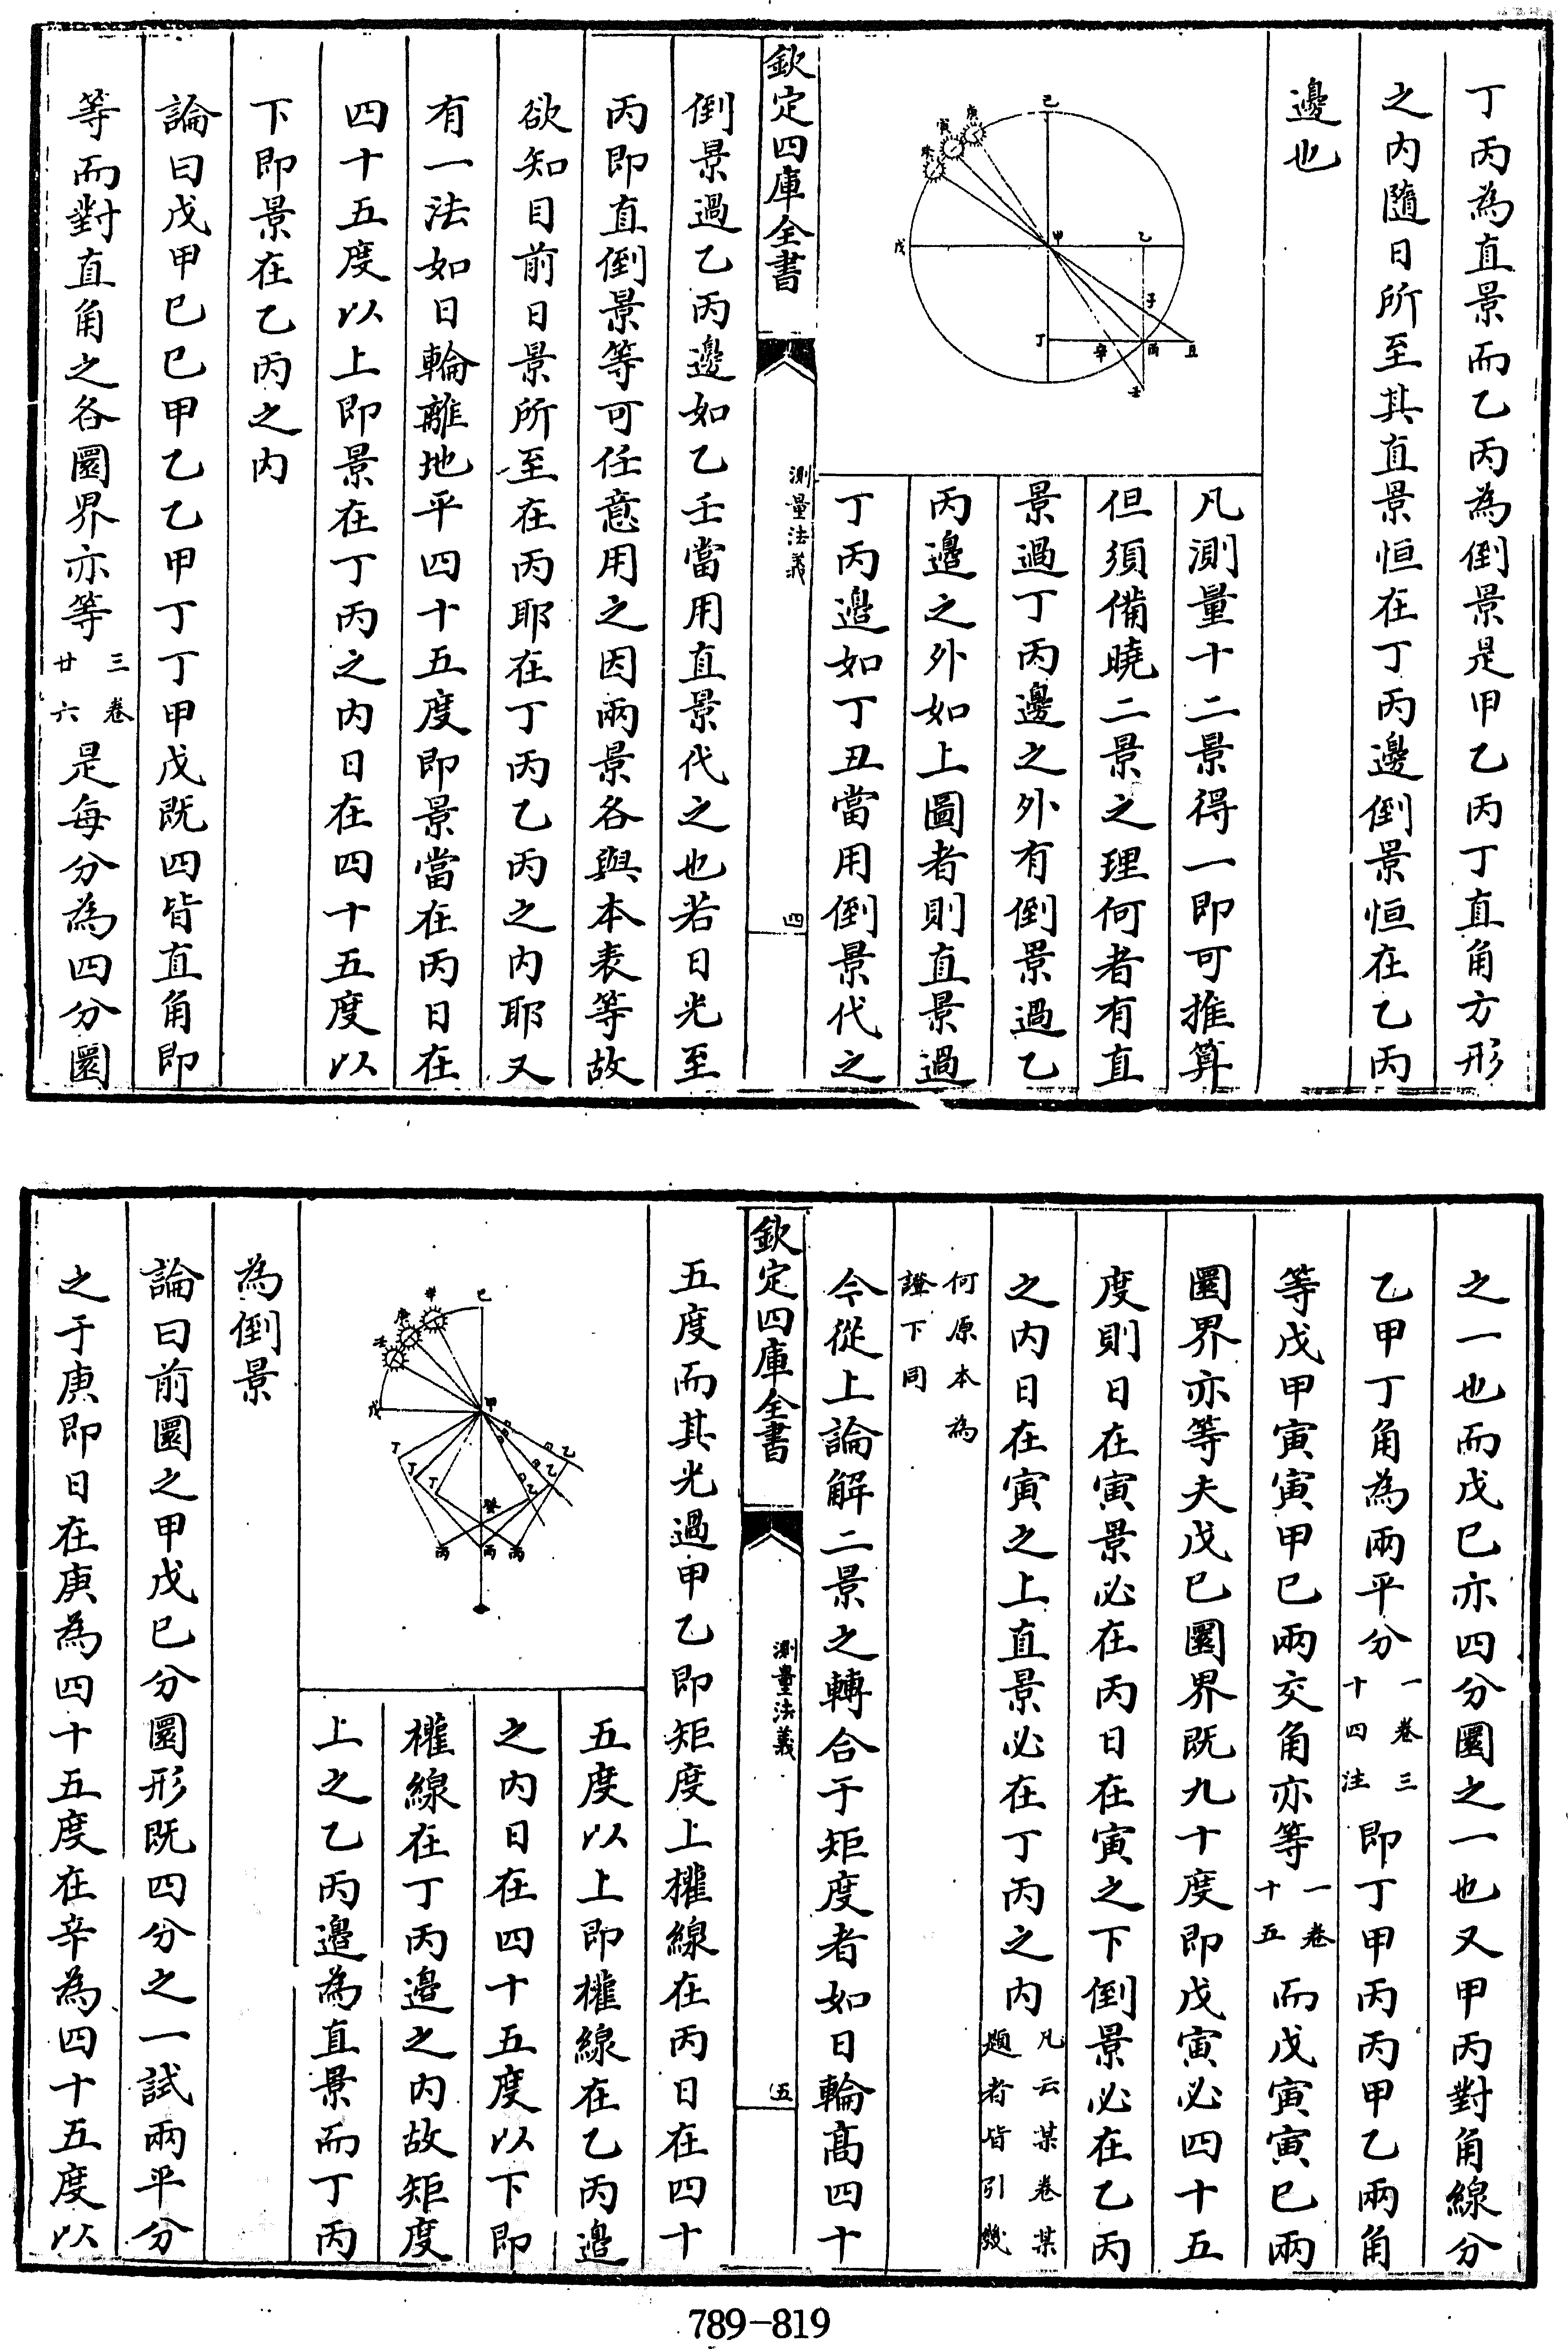 丁丙為直景而乙丙為倒景是甲乙丙丁直角方形
之内隨日所至其直景恒在丁丙邊倒景恒在乙丙
邊也
己
庚
寅
癸
戊
甲
乙
子
丁
辛
丙
丑
壬
凡測量十二景得一即可推算
但須備曉二景之理何者有直
景過丁丙邊之外有倒景過乙
丙邊之外如上圖者則直景過
丁丙邊如丁丑當用倒景代之
欽定四庫全書
測量法義
四
倒景過乙丙邊如乙壬當用直景代之也若日光至
丙即直倒景等可任意用之因兩景各與本表等故
欲知目前日景所至在丙耶在丁丙乙丙之内耶又
有一法如日輪離地平四十五度即景當在丙日在
四十五度以上即景在丁丙之内日在四十五度以
下即景在乙丙之内
論曰戊甲巳巳甲乙乙甲丁丁甲戊既四皆直角即
等而對直角之各圜界亦等三卷廿六是每分為四分圜
之一也而戊巳亦四分圜之一也又甲丙對角線分
乙甲丁角為兩平分一卷三十四注即丁甲丙丙甲乙兩角
等戊甲寅寅甲巳兩交角亦等一卷十五而戊寅寅巳兩
圜界亦等夫戊巳圜界既九十度即戊寅必四十五
度則日在寅景必在丙日在寅之下倒景必在乙丙
之内日在寅之上直景必在丁丙之内凡云某卷某題者皆引幾
何原本為證下同
今從上論解二景之轉合于矩度者如日輪高四十
欽定四庫全書
測量法義
五
五度而其光過甲乙即矩度上權線在丙日在四十
五度以上即權線在乙丙邊
之内日在四十五度以下即
權線在丁丙邊之内故矩度
上之乙丙邊為直景而丁丙
己
辛
庚
壬
戊
甲
丁
丁
丁
乙
乙
乙
癸
丙
丙
丙
為倒景
論曰前圜之甲戊巳分圜形既四分之一試兩平分
之于庚即日在庚為四十五度在辛為四十五度以
789-819